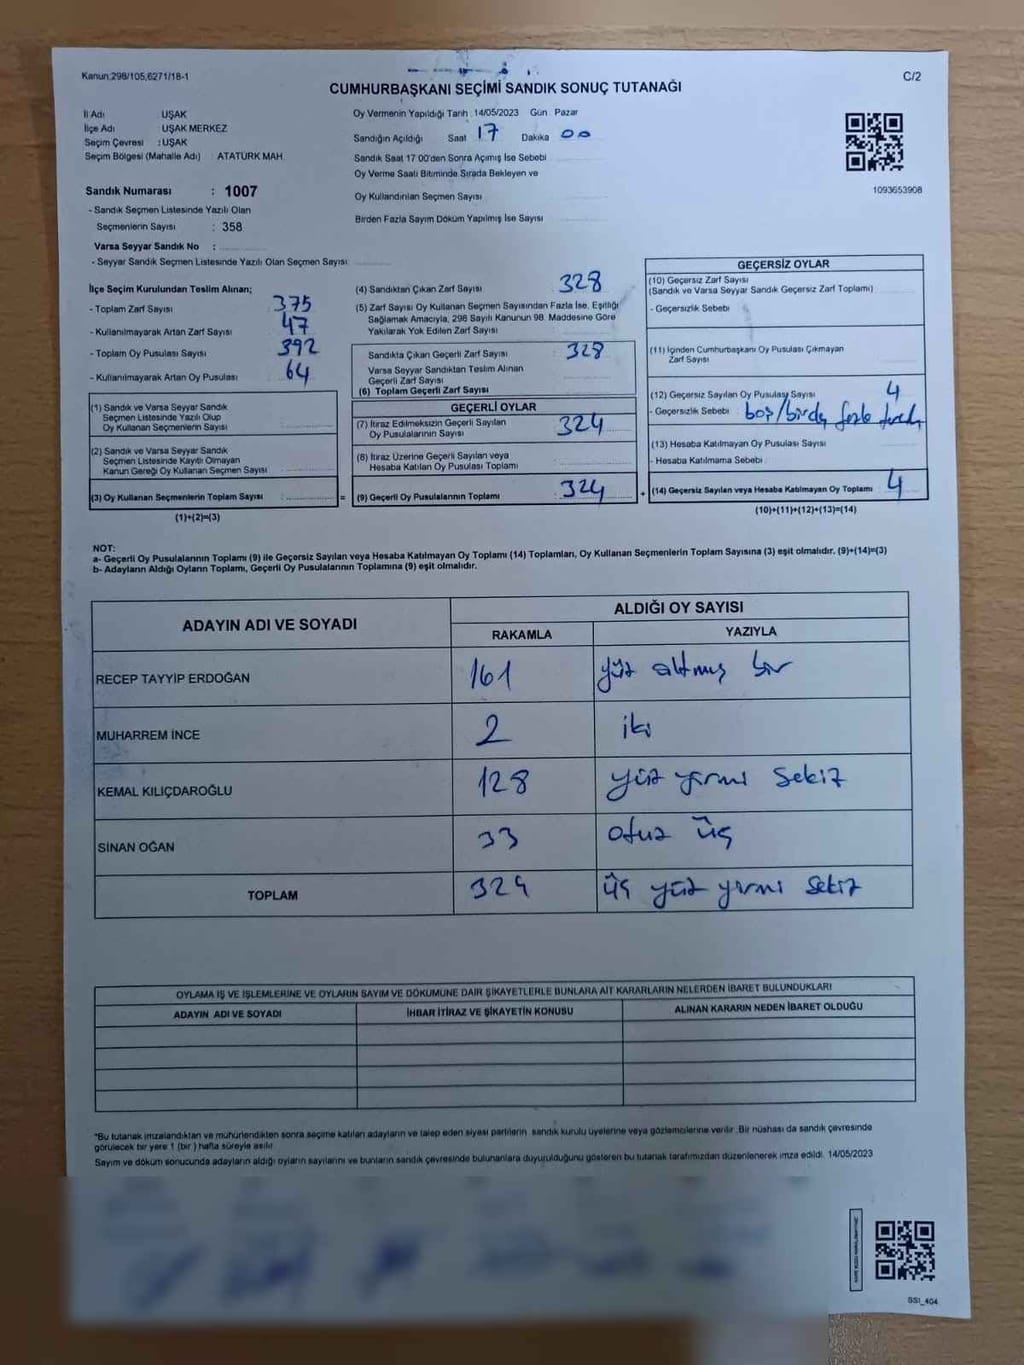 Kanun:298/105,6271/18-1
C/2
CUMHURBAŞKANI SEÇİMİ SANDIK SONUÇ TUTANAĞI
İl Adı : UŞAK
İlçe Adı : UŞAK MERKEZ
Seçim Çevresi : UŞAK
Seçim Bölgesi (Mahalle Adı) : ATATÜRK MAH.
Sandık Numarası : 1007
- Sandık Seçmen Listesinde Yazılı Olan
Seçmenlerin Sayısı : 358
Varsa Seyyar Sandık No :
- Seyyar Sandık Seçmen Listesinde Yazılı Olan Seçmen Sayısı:
Oy Vermenin Yapıldığı Tarih : 14/05/2023 Gün : Pazar
Sandığın Açıldığı Saat 17 Dakika 00
Sandık Saat 17:00'den Sonra Açılmış İse Sebebi
Oy Verme Saati Bitiminde Sırada Bekleyen ve
Oy Kullandırılan Seçmen Sayısı
Birden Fazla Sayım Döküm Yapılmış İse Sayısı
1093653908
İlçe Seçim Kurulundan Teslim Alınan;
- Toplam Zarf Sayısı : 375
- Kullanılmayarak Artan Zarf Sayısı : 47
- Toplam Oy Pusulası Sayısı : 392
- Kullanılmayarak Artan Oy Pusulası : 64
(1) Sandık ve Varsa Seyyar Sandık
Seçmen Listesinde Yazılı Olup
Oy Kullanan Seçmenlerin Sayısı :
(2) Sandık ve Varsa Seyyar Sandık
Seçmen Listesinde Kayıtlı Olmayan
Kanun Gereği Oy Kullanan Seçmen Sayısı :
(3) Oy Kullanan Seçmenlerin Toplam Sayısı : =
(1)+(2)=(3)
(4) Sandıktan Çıkan Zarf Sayısı : 328
(5) Zarf Sayısı Oy Kullanan Seçmen Sayısından Fazla İse, Eşitliği
Sağlamak Amacıyla, 298 Sayılı Kanunun 98. Maddesine Göre
Yakılarak Yok Edilen Zarf Sayısı :
Sandıkta Çıkan Geçerli Zarf Sayısı : 328
Varsa Seyyar Sandıktan Teslim Alınan
Geçerli Zarf Sayısı
(6) Toplam Geçerli Zarf Sayısı
GEÇERLİ OYLAR
(7) İtiraz Edilmeksizin Geçerli Sayılan
Oy Pusulalarının Sayısı : 324
(8) İtiraz Üzerine Geçerli Sayılan veya
Hesaba Katılan Oy Pusulası Toplamı :
(9) Geçerli Oy Pusulalarının Toplamı : 324 +
GEÇERSİZ OYLAR
(10) Geçersiz Zarf Sayısı
(Sandık ve Varsa Seyyar Sandık Geçersiz Zarf Toplamı)
- Geçersizlik Sebebi :
(11) İçinden Cumhurbaşkanı Oy Pusulası Çıkmayan
Zarf Sayısı
(12) Geçersiz Sayılan Oy Pusulası Sayısı 4
- Geçersizlik Sebebi : boş/birden fazla
(13) Hesaba Katılmayan Oy Pusulası Sayısı
- Hesaba Katılmama Sebebi :
(14) Geçersiz Sayılan veya Hesaba Katılmayan Oy Toplamı 4
(10)+(11)+(12)+(13)=(14)
NOT:
a- Geçerli Oy Pusulalarının Toplamı (9) ile Geçersiz Sayılan veya Hesaba Katılmayan Oy Toplamı (14) Toplamları, Oy Kullanan Seçmenlerin Toplam Sayısına (3) eşit olmalıdır. (9)+(14)=(3)
b- Adayların Aldığı Oyların Toplamı, Geçerli Oy Pusulalarının Toplamına (9) eşit olmalıdır.
ADAYIN ADI VE SOYADI
ALDIĞI OY SAYISI
RAKAMLA YAZIYLA
RECEP TAYYİP ERDOĞAN 161 yüz altmış bir
MUHARREM İNCE 2 iki
KEMAL KILIÇDAROĞLU 128 yüz yirmi sekiz
SİNAN OĞAN 33 otuz üç
TOPLAM 324 üç yüz yirmi sekiz
OYLAMA İŞ VE İŞLEMLERİNE VE OYLARIN SAYIM VE DÖKÜMÜNE DAİR ŞİKAYETLERLE BUNLARA AİT KARARLARIN NELERDEN İBARET BULUNDUKLARI
ADAYIN ADI VE SOYADI İHBAR İTİRAZ VE ŞİKAYETİN KONUSU ALINAN KARARIN NEDEN İBARET OLDUĞU
*Bu tutanak imzalandıktan ve mühürlendikten sonra seçime katılan adayların ve talep eden siyasi partilerin sandık kurulu üyelerine veya gözlemcilerine verilir. Bir nüshası da sandık çevresinde
görülecek bir yere 1 (bir) hafta süreyle asılır.
Sayım ve döküm sonucunda adayların aldığı oyların sayılarını ve bunların sandık çevresinde bulunanlara duyurulduğunu gösteren bu tutanak tarafımızdan düzenlenerek imza edildi. 14/05/2023
SSI_404